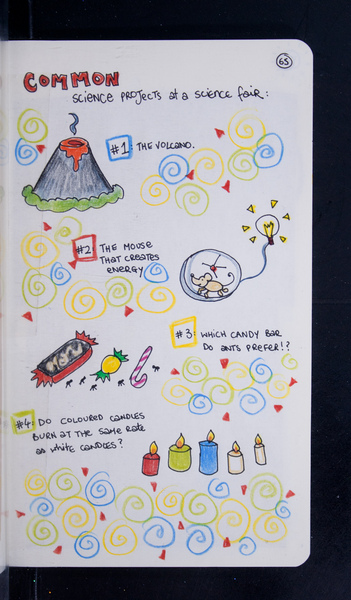 65
COMMON
SCIENCE PROJECTS at a SCIENCE fair:
#1: THE VOLCANO.
#2: THE MOUSE
THAT CREATES
ENERGY
#3: WHICH CANDY BAR
DO ANTS PREFER!?
#4: DO COLOURED CANDLES
BURN AT THE SAME RATE
as WHITE CANDLES?